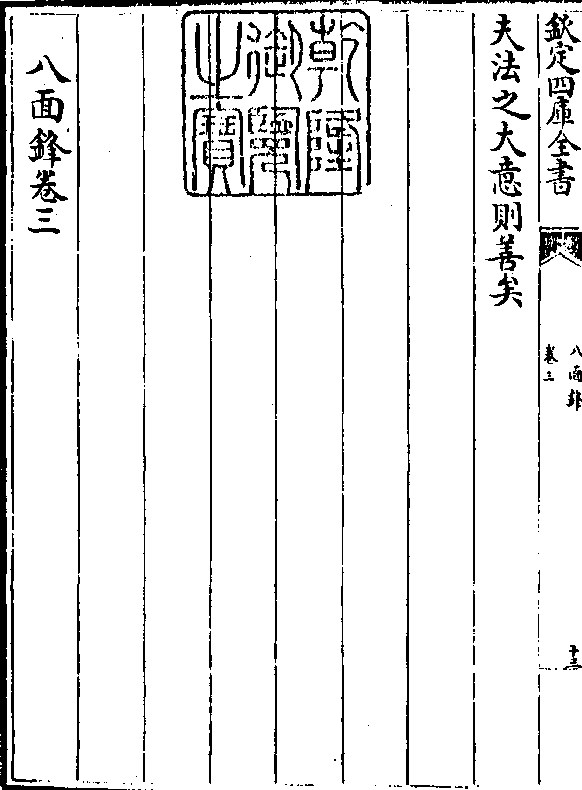 欽定四庫全書
八面鋒
卷三
十三
夫法之大意則善矣
乾隆御覽之寶
八面鋒卷三